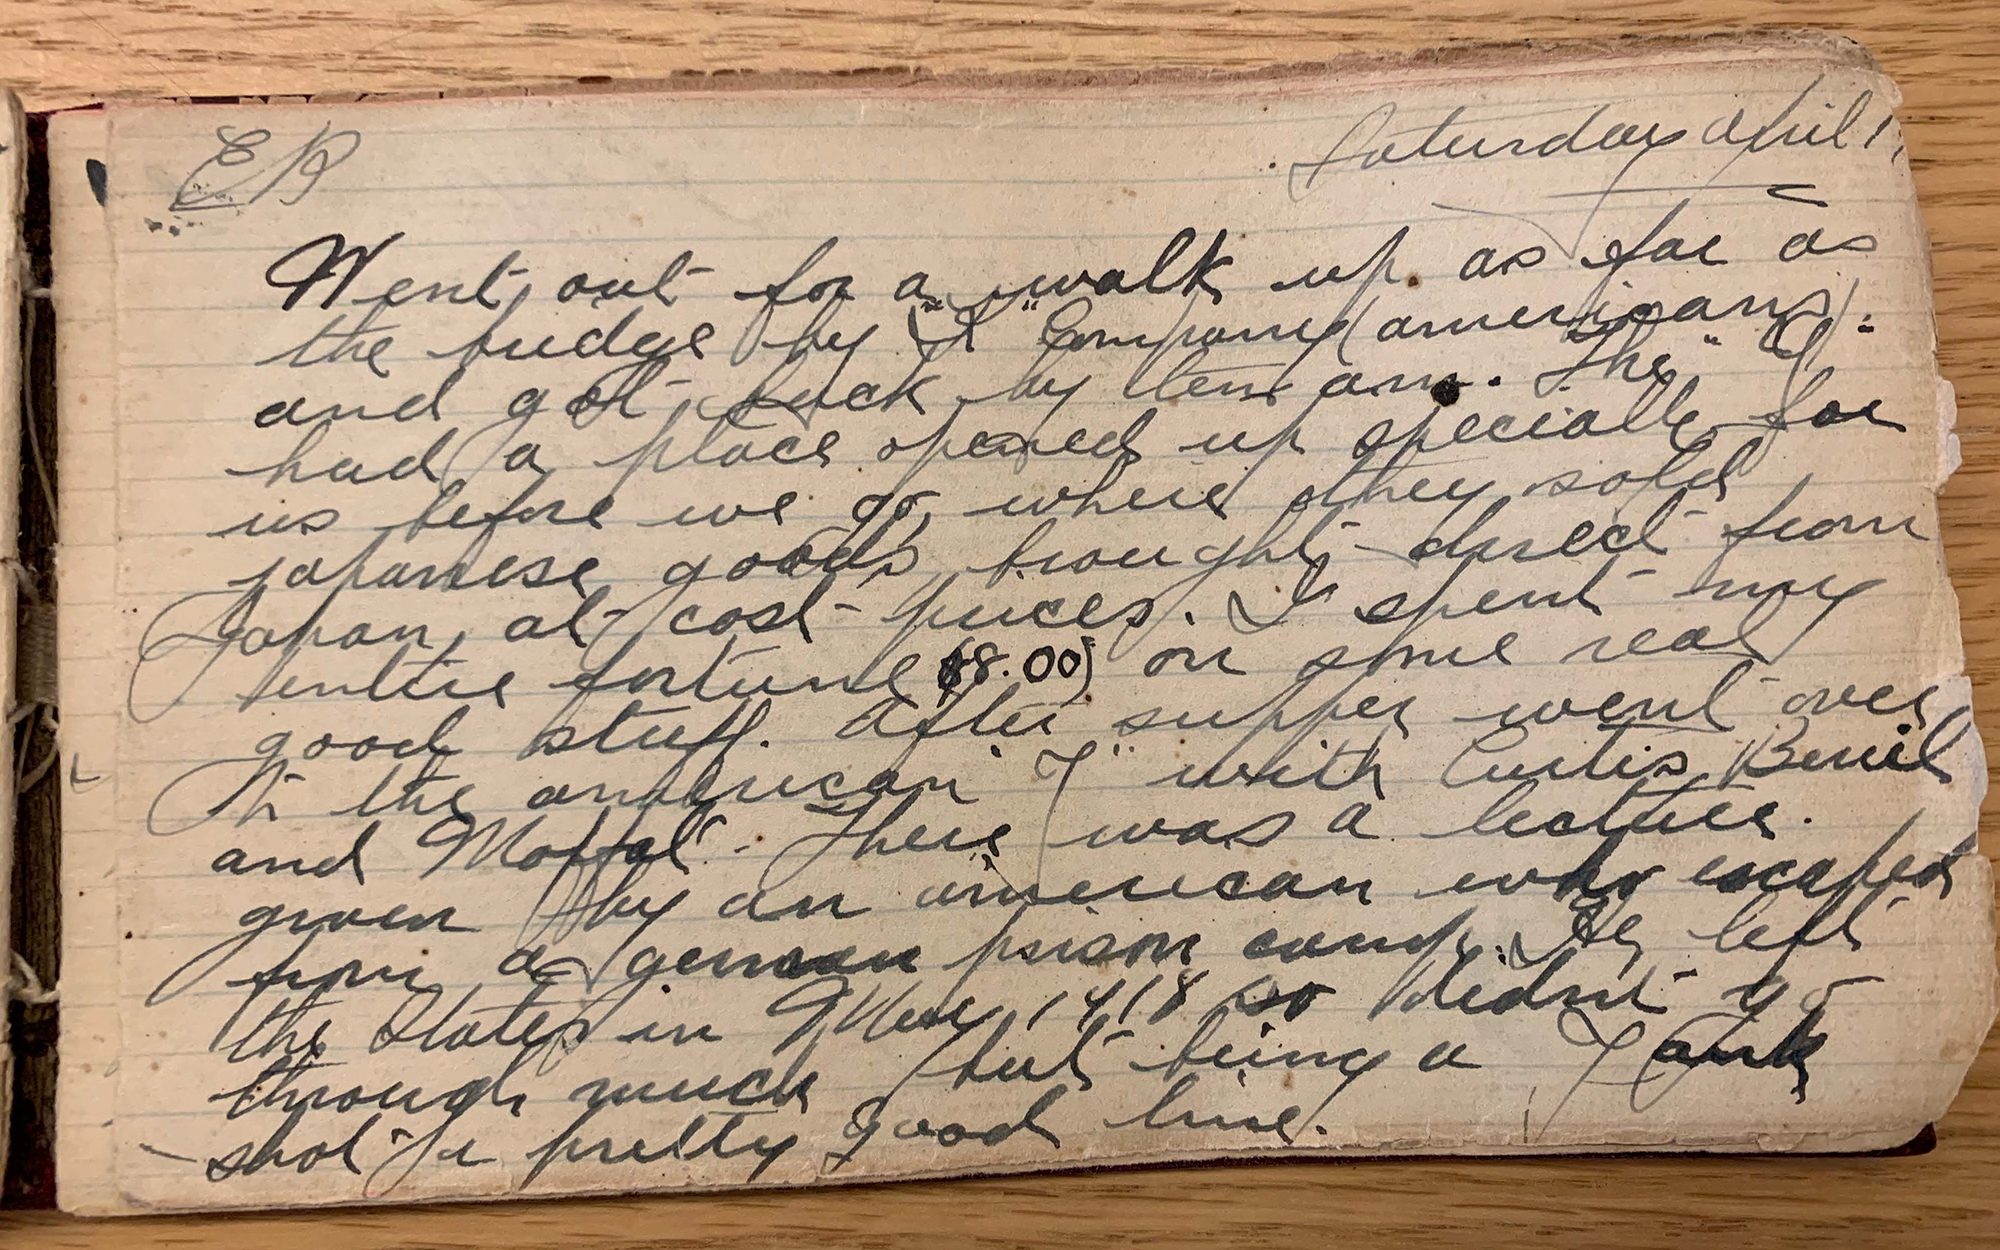 ER
Saturday April 1
Went out for a walk up as far as
the bridge by "L" Company (americans)
and got back by ten am. The "Y"
had a place opened up specially for
us before we go, where they sold
japanese goods, brought direct from
Japan, at cost prices. I spent my
entire fortune ($8.00) on some real
good stuff. After supper went over
to the american "Y" with Curtis,
and Moffat. There was a lecture.
given by an american who escaped
from a german prison camp. He left
the States in 1918 so didnt go
through much but being a Yank
shot a pretty good line.